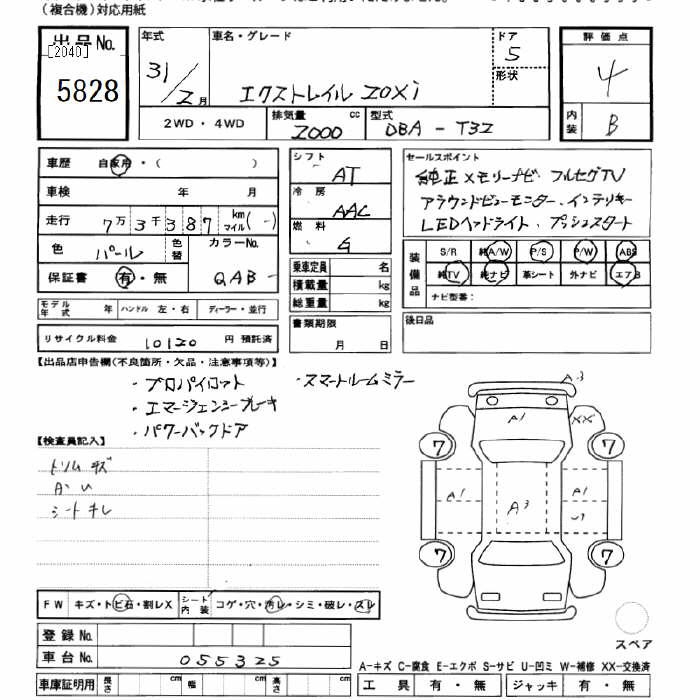 (複合機)対応用紙
出品No.
[2040]
5828
年式
31/2月
車名・グレード
エクストレイル 20Xi
ドア
5
形状
評価点
4
内装
B
2WD・4WD
排気量
cc
2000
型式
DBA - T32
車歴 自家用・( )
車検 年 月
走行 7万3千387 km マイル (-)
色 パール
色替
カラーNo.
QAB-
保証書 有・無
モデル年式 年 ハンドル 左・右 ディーラー・並行
リサイクル料金 10120 円 預託済
シフト
AT
冷房
AAC
燃料
G
乗車定員 名
積載量 kg
総重量 kg
書類期限
月 日
セールスポイント
純正メモリーナビ・フルセグTV
アラウンドビューモニター・インテリキー
LEDヘッドライト・プッシュスタート
装備品
S/R 純A/W P/S P/W ABS
純TV 純ナビ 革シート 外ナビ エアB
ナビ型番:
後日品
【出品店申告欄(不良箇所・欠品・注意事項等)】
・プロパイロット ・スマートルームミラー
・エマージェンシーブレーキ
・パワーバックドア
【検査員記入】
トリム キズ
シート キレ
A3
A1
XX
7
7
A1
A3
A1
U1
7
7
スペア
FW キズ・トビ石・割レX シート内装 コゲ・穴・汚レ・シミ・破レ・スレ
登録No.
車台No. 055325
車庫証明用 長さ cm 幅 cm 高さ cm
A-キズ C-腐食 E-エクボ S-サビ U-凹ミ W-補修 XX-交換済
工具 有・無 ジャッキ 有・無